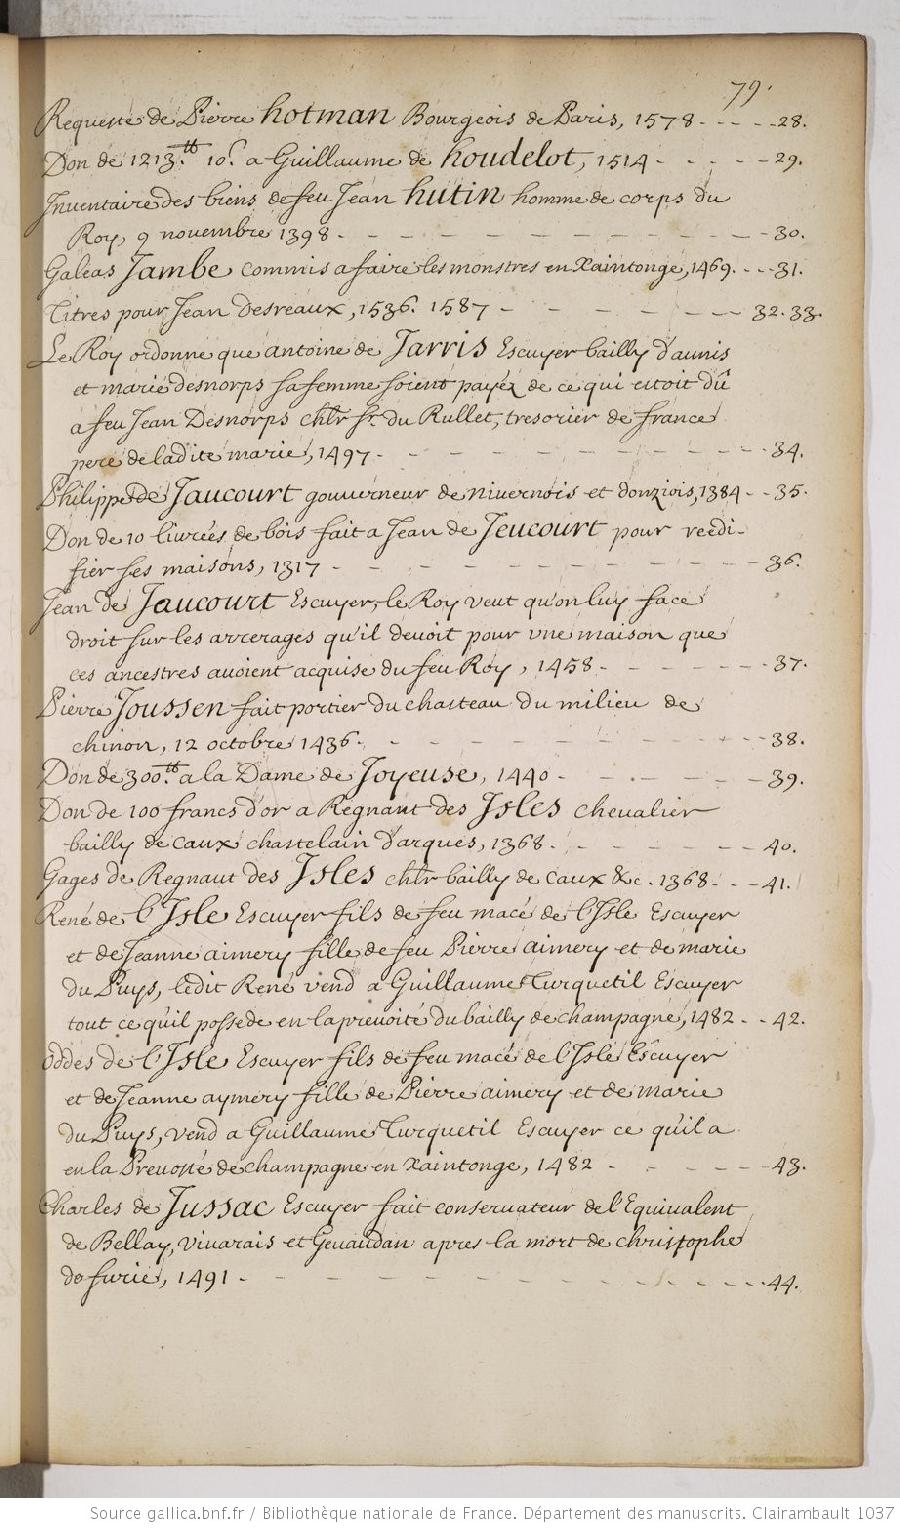 79.
Requeste de Pierre hotman Bourgeois de Paris, 1578 - - - - 28.
Don de 1213.tt 10.s a Guillaume de houdelot, 1514 - - - - - 29.
Inventaire des biens de feu Jean hutin homme de corps du
Roy, 9 novembre 1398 - - - - - - - - - - - - 30.
Galeas Jambe commis a faire les monstres en Xaintonge, 1469. - - - 31.
Titres pour Jean desreaux, 1536. 1587 - - - - - - - 32. 33.
Le Roy ordonne que antoine de Jarris Escuyer bailly d'aunis
et marie desnorps sa femme soient payéz de ce qui estoit dû
a feu Jean Desnorps chlr sr. du Rullet, tresorier de france
pere de ladite marie, 1497 - - - - - - - - - - - 34.
Philippe de Jaucourt gouverneur de nivernois et donziois, 1384 - - 35.
Don de 10 livrées de bois fait a Jean de Jeucourt pour reedi-
fier ses maisons, 1317 - - - - - - - - - - - 36.
Jean de Jaucourt Escuyer, le Roy veut qu'on luy face
droit sur les arrerages qu'il devoit pour vne maison que
ces ancestres avoient acquise du feu Roy, 1458 - - - - - - - 37.
Pierre Joussen fait portier du chasteau du milieu de
chinon, 12 octobre 1436. - - - - - - - - - - 38.
Don de 300.tt a la Dame de Joyeuse, 1440 - - - - - - 39.
Don de 100 francs d'or a Regnaut des Isles chevalier
bailly de caux chastelain d'arques, 1368. - - - - - - 40.
Gages de Regnaut des Isles chlr bailly de caux &c. 1368 - - - 41.
René de l'Isle Escuyer fils de feu macé de l'Isle Escuyer
et de Jeanne aimery fille de feu Pierre aimery et de marie
du Puys, ledit René vend a Guillaume Turquetil Escuyer
tout ce qu'il possede en la prevoité du bailly de champagne, 1482 - - 42.
Oddes de l'Isle Escuyer fils de feu macé de l'Isle Escuyer
et de Jeanne aymery fille de Pierre aimery et de marie
du Puys, vend a Guillaume Turquetil Escuyer ce qu'il a
en la Prevosté de champagne en Xaintonge, 1482 - - - - - 43.
Charles de Jussac Escuyer fait conservateur de l'Equivalent
de Bellay, vivarais et Gevaudan apres la mort de christophe
de furie, 1491 - - - - - - - - - - - - - - 44.
Source gallica.bnf.fr / Bibliothèque nationale de France. Département des manuscrits. Clairambault 1037